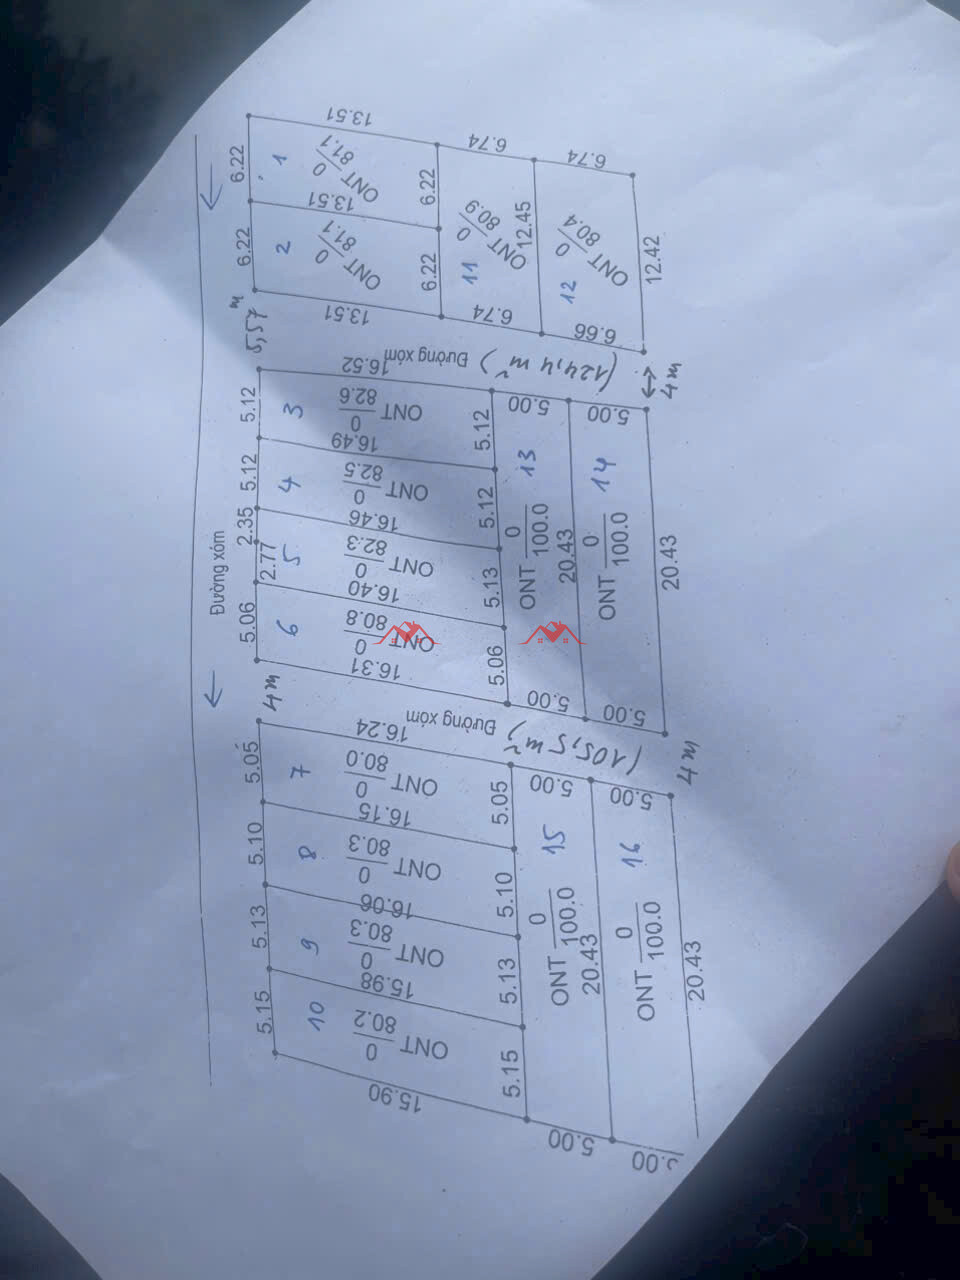 13.51
6.22
1
ONT 0/81.1
6.22
13.51
6.22
2
ONT 0/81.1
6.22
13.51
6.74
11
ONT 0/80.9
12.45
6.74
6.74
12
ONT 0/80.4
12.42
6.66
5,57 m
Đường xóm (124,4 m²)
4 m
16.52
5.12
3
ONT 0/82.6
5.12
16.49
5.12
4
ONT 0/82.5
5.12
16.46
2.35
2.77
5
ONT 0/82.3
5.13
16.40
5.06
6
ONT 0/80.8
5.06
16.31
5.00
13
ONT 0/100.0
20.43
5.00
5.00
14
ONT 0/100.0
20.43
5.00
Đường xóm
4 m
Đường xóm (105,5 m²)
4 m
16.24
5.05
7
ONT 0/80.0
5.05
16.15
5.10
8
ONT 0/80.3
5.10
16.06
5.13
9
ONT 0/80.3
5.13
15.98
5.15
10
ONT 0/80.2
5.15
15.90
5.00
15
ONT 0/100.0
20.43
5.00
5.00
16
ONT 0/100.0
20.43
5.00